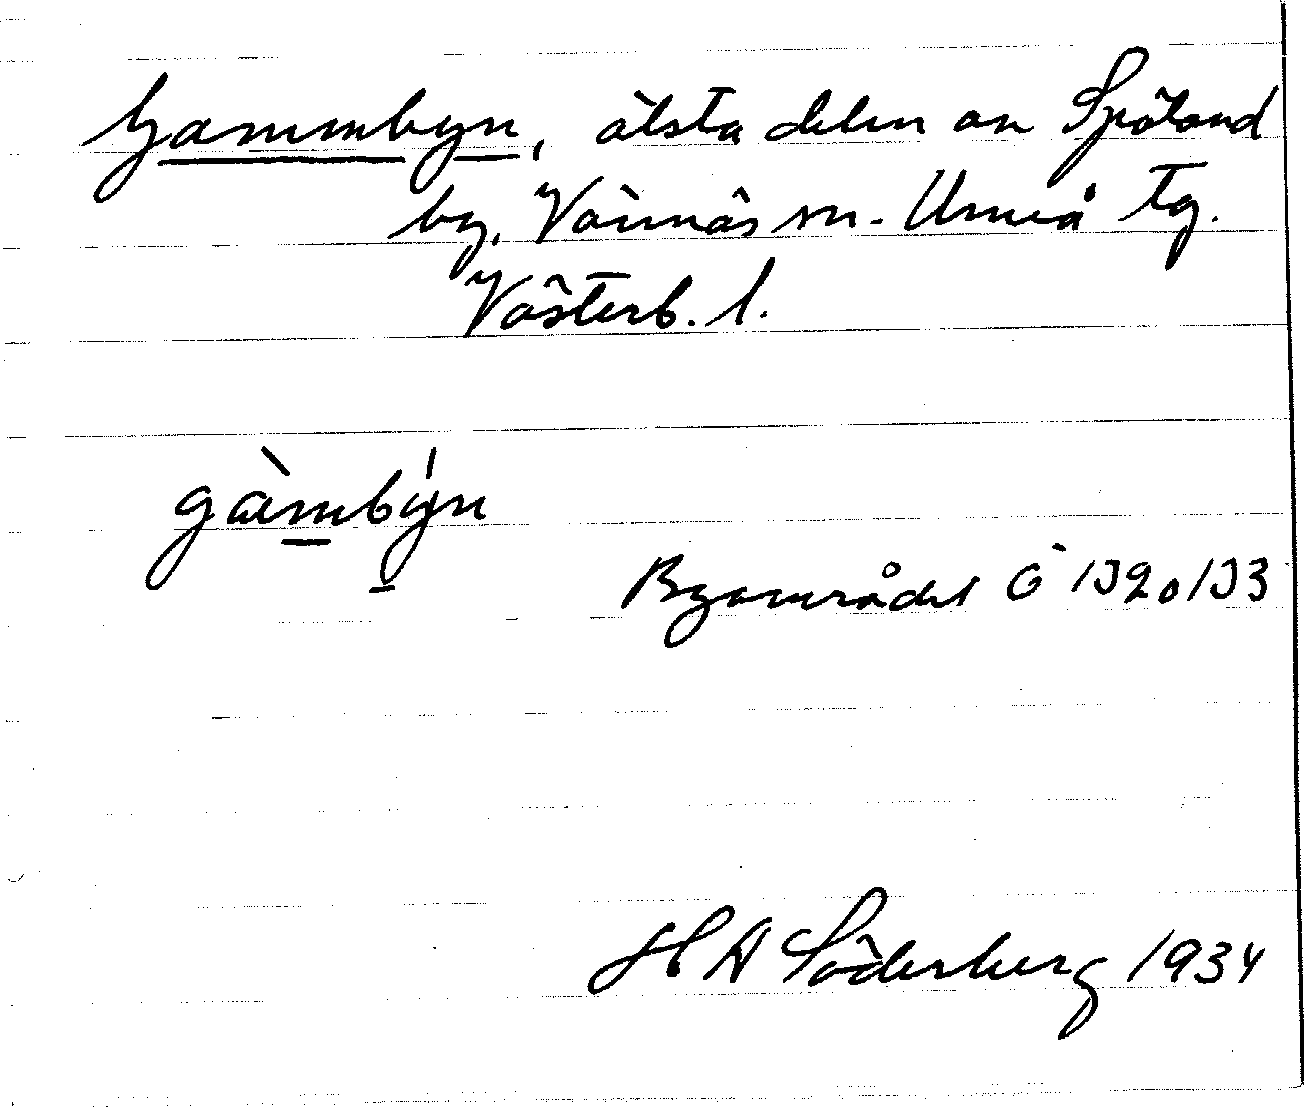 Gammbyn, älsta delen av Spöland
by, Vännäs sn. Umeå tg.
Västerb. l.
gàmbýn
Byområdet G 132, 133
H A Söderberg 1934